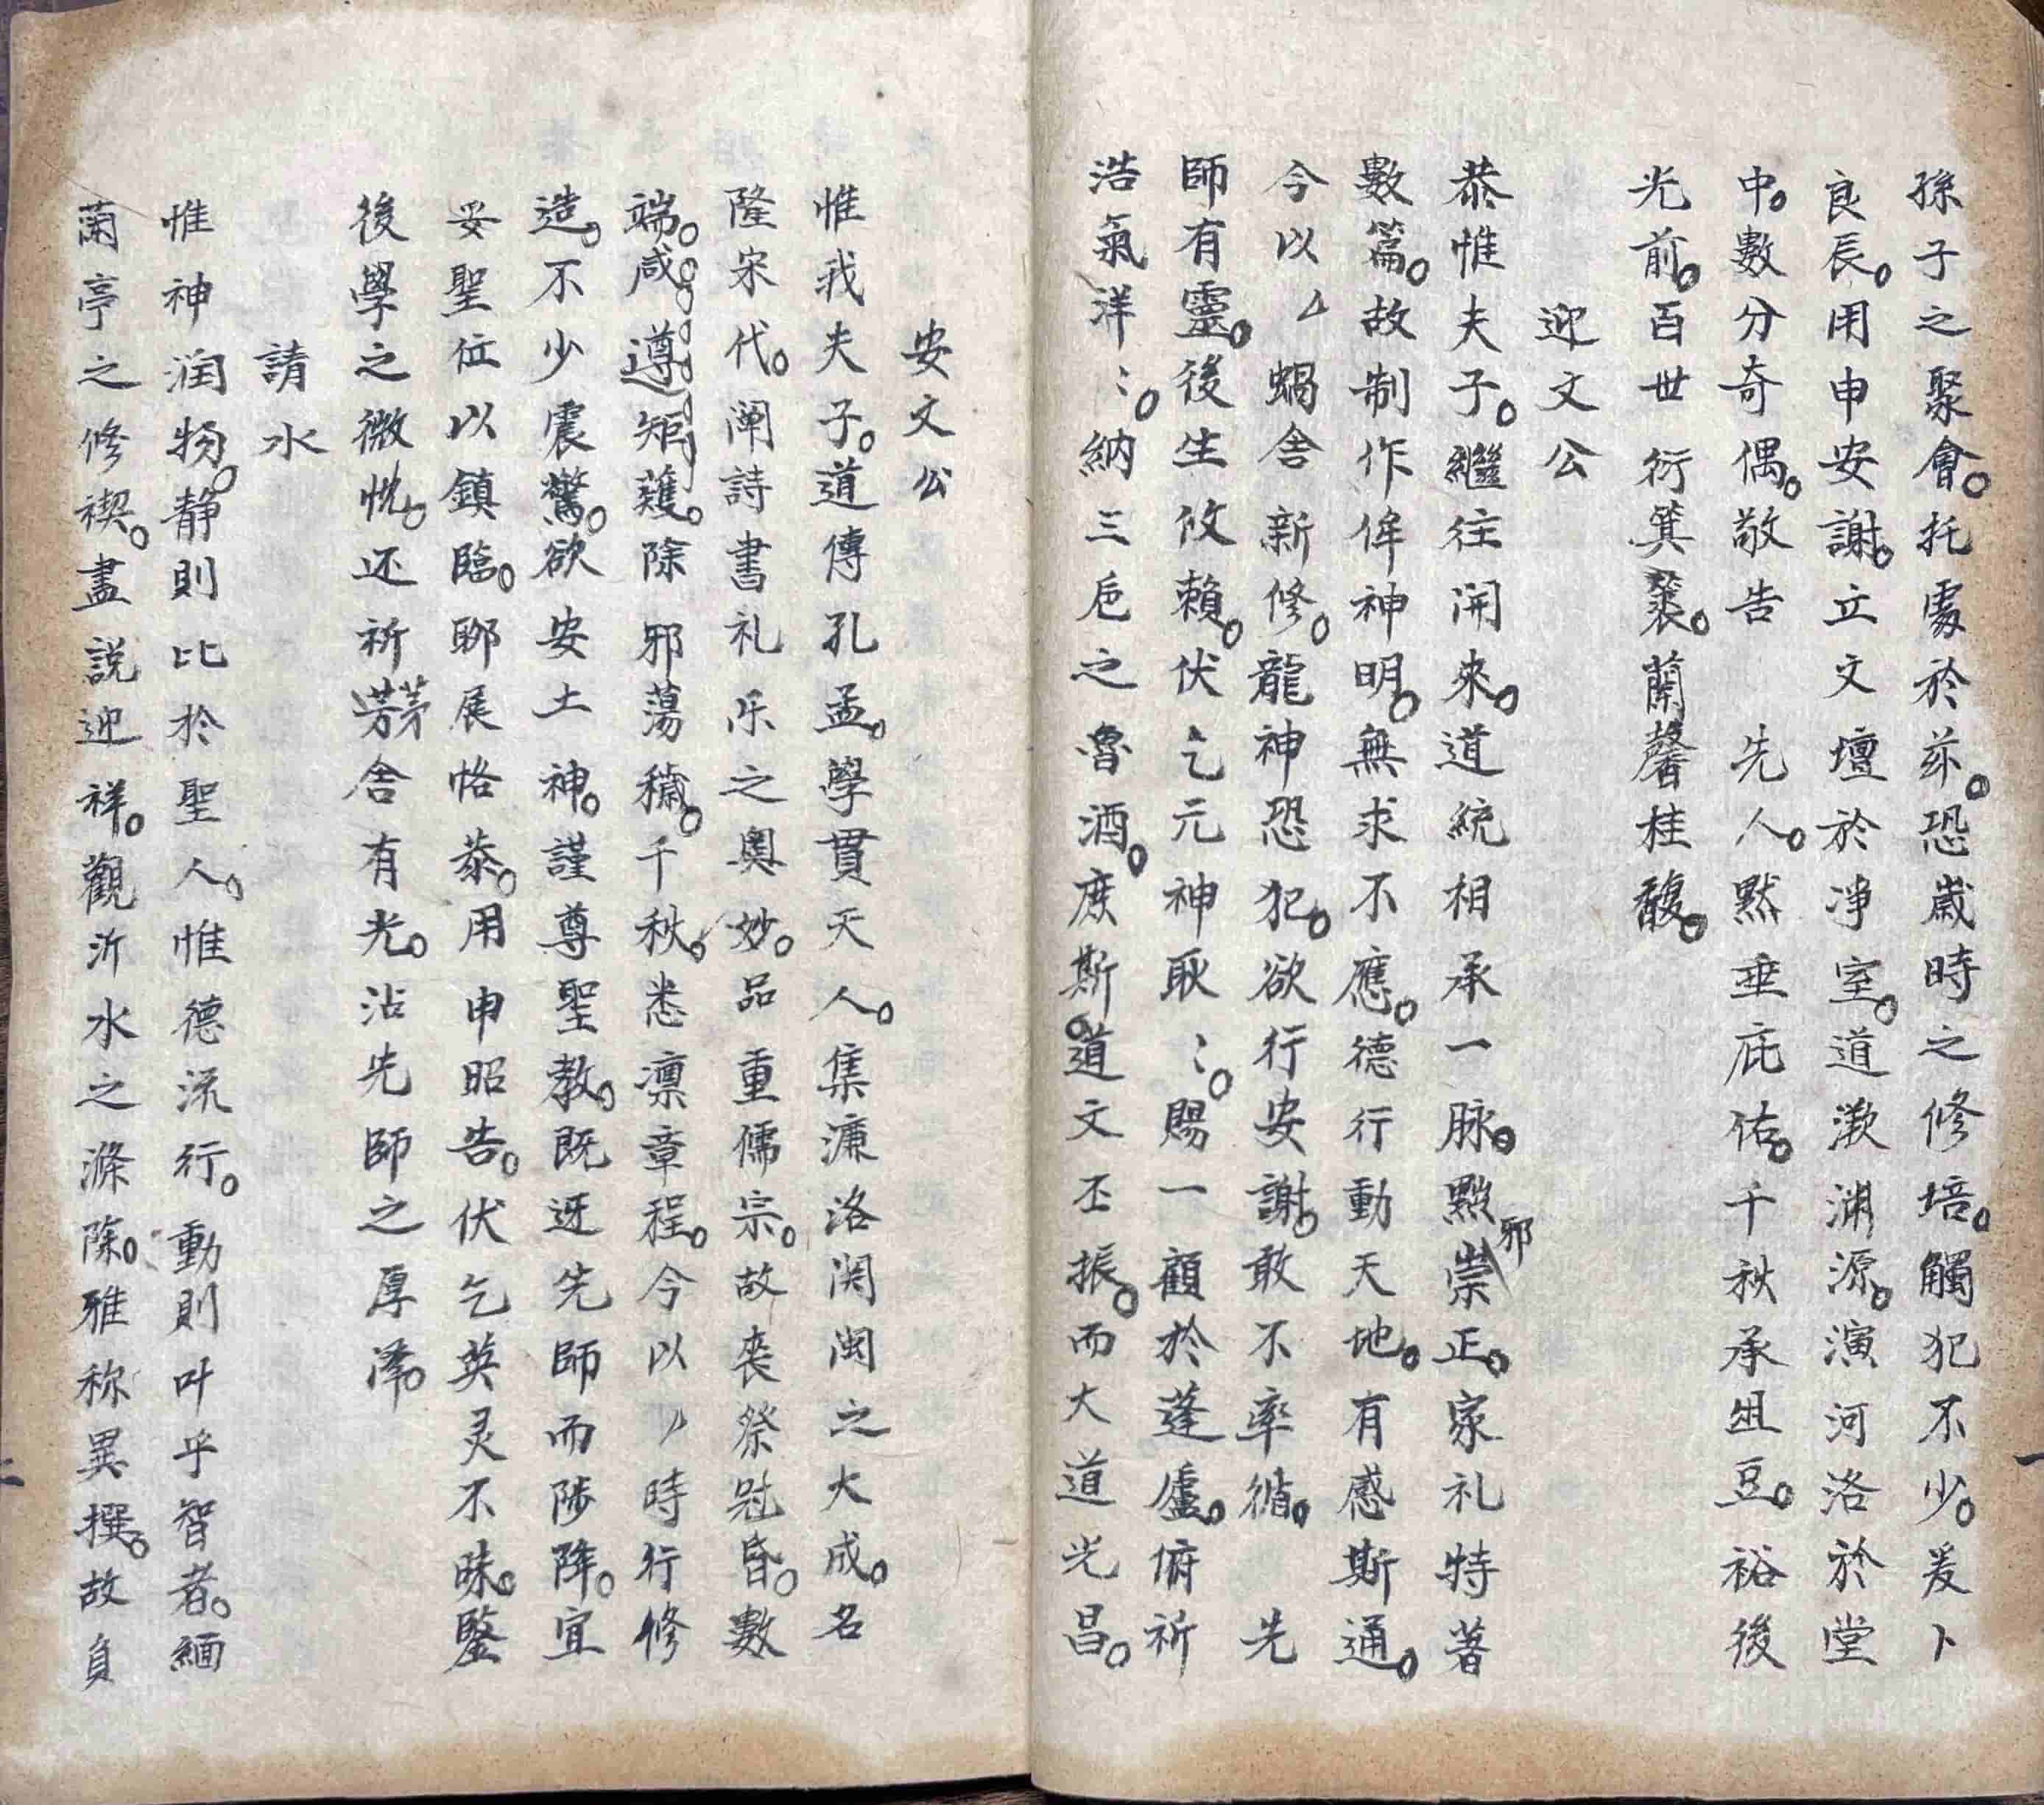 孫子之聚會。托處於茲。恐歲時之修培。觸犯不少。爰卜
良辰。用申安謝。立文壇於凈室。道漱淵源。演河洛於堂
中。數分奇偶。敬告 先人。默垂庇佑。千秋承俎豆。裕後
光前。百世衍箕裘。蘭馨桂馥。
迎文公
恭惟夫子。繼往開來。道統相承一脉。黜邪崇正。家礼特著
數篇。故制作侔神明。無求不應。德行動天地。有感斯通。
今以厶蝸舍新修。龍神恐犯。欲行安謝。敢不率循。 先
師有靈。後生攸賴。伏乞元神耿〻。賜一顧於蓬廬。俯祈
浩氣洋〻。納三卮之魯酒。庶斯道文丕振。而大道光昌。
安文公
惟我夫子。道傳孔孟。學貫天人。集濂洛関闽之大成。名
隆宋代。阐詩書礼乐之奥妙。品重儒宗。故丧祭冠昏。數
端。咸遵矩矱。除邪蕩穢。千秋。悉凛章程。今以 時行修
造。不少震驚。欲安土神。謹尊聖教。既迓先師而陟降。宜
妥聖位以鎮臨。聊展恪恭。用申昭告。伏乞英灵不昧。鑒
後學之微忱。还祈茅舍有光。沾先師之厚澤。
請水
惟神润物。静則比於聖人。惟德流行。動則叶乎智者。緬
蘭亭之修禊。盡説迎祥。觀沂水之滌除。雅称異撰。故負